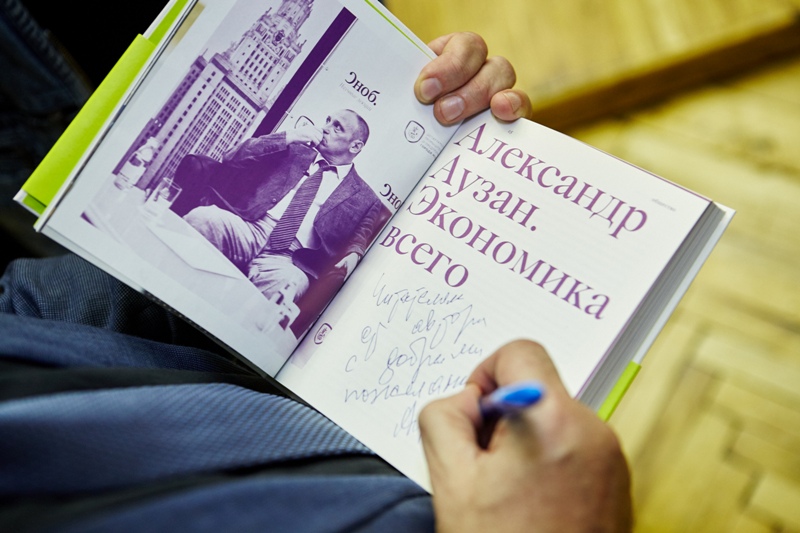 Сноб.
Сно
Александр
Аузан.
Экономика
всего
Читателям
от автора
с добрыми
пожеланиями